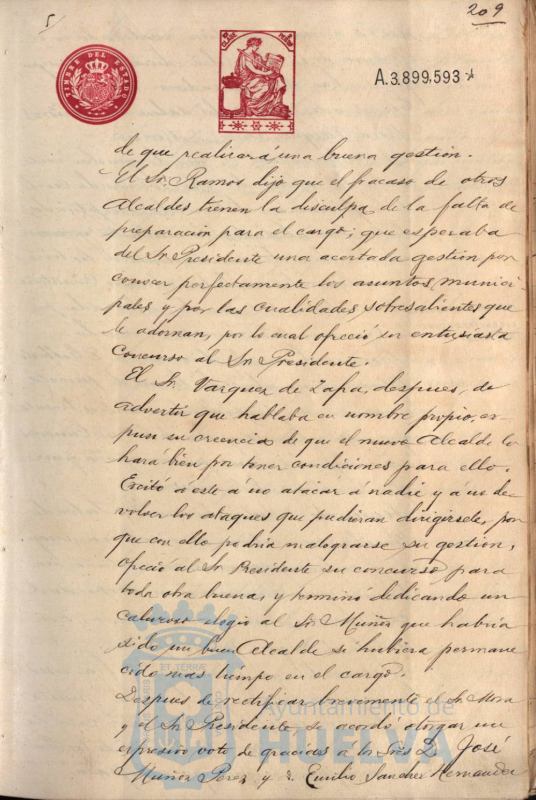 209
TIMBRE DEL ESTADO
A.3.899,593
de que realizará una buena gestion.
El Sr. Ramos dijo que el fracaso de otros
Alcaldes tienen la disculpa de la falta de
preparación para el cargo; que esperaba
del Sr. Presidente una acertada gestión por
conocer perfectamente los asuntos munici-
pales y por las cualidades sobresalientes que
le adornan, por lo cual ofreció su entusiasta
concurso al Sr. Presidente.
El Sr. Vazquez de Zafra, despues, de
advertir que hablaba en nombre propio, ex-
puso su creencia de que el nuevo Alcalde lo
hará bien por tener condiciones para ello.
Excitó á este á no atacar á nadie y á no de-
volver los ataques que pudieran dirigirsele, por
que con ello podria malograrse su gestion,
ofreció al Sr. Presidente su concurso para
toda obra buena, y terminó dedicando un
caluroso elogio al Sr. Muñoz que habría
sido un buen Alcalde si hubiera permane
cido mas tiempo en el cargo.
Despues de rectificar brevemente el Sr. Mora
y el Sr. Presidente, se acordó otorgar un
expresivo voto de gracias á los Sres. D. José
Muñoz Perez y D. Emilio Sanchez Hernandez
Ayuntamiento de
HUELVA